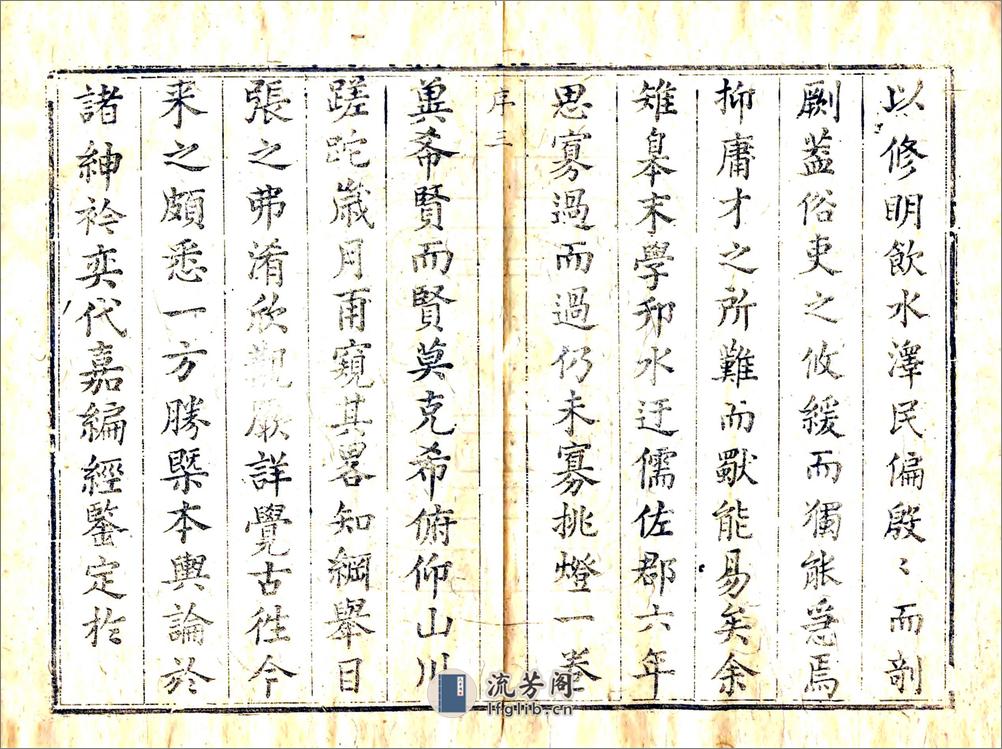 以修明飲水澤民偏殷〻而剞
劂葢俗吏之攸緩而獨能急焉
抑庸才之所難而獸能易矣余
雉皋末學邗水迂儒佐郡六年
思寡過而過仍未寡挑燈一卷
序 三
冀希賢而賢莫克希俯仰山川
蹉跎歳月甫窺其畧知綱舉目
張之弗淆欣觀厥詳覺古徃今
来之頗悉一方勝槩本輿論於
諸紳衿奕代嘉編經鑒定於
流芳阁
lfglib.cn